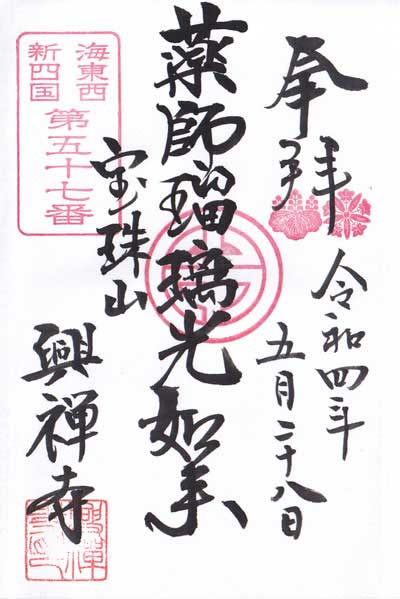 奉拝
令和四年
五月二十八日
薬師瑠璃光如来
宝珠山
興禅寺
海東西
新四国
第五十七番